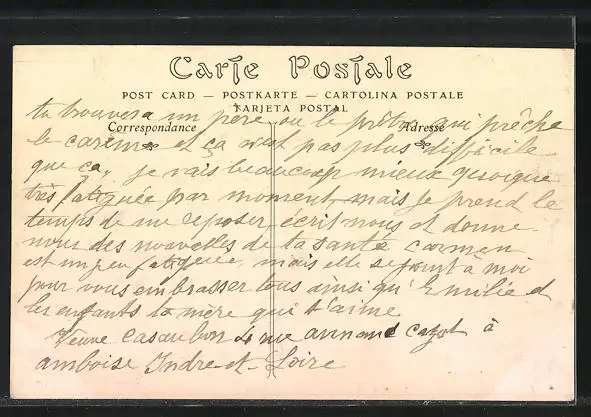 Carte Postale
POST CARD — POSTKARTE — CARTOLINA POSTALE
TARJETA POSTAL
Correspondance
Adresse
tu trouvera un pere ou le prêtre qui prêche
le careme et ça n'est pas plus difficile
que ça, je vais beaucoup mieux quoique
très fatiguée par moment, mais je prend le
temps de me reposer, écrit nous et donne
nous des nouvelles de ta santé carmen
est un peu fatiguée, mais elle se joint à moi
pour vous embrasser tous ainsi qu'Emilie et
les enfants ta mère qui t'aime
Veuve Casaubon 4 rue armand cazot à
amboise Indre-et-Loire